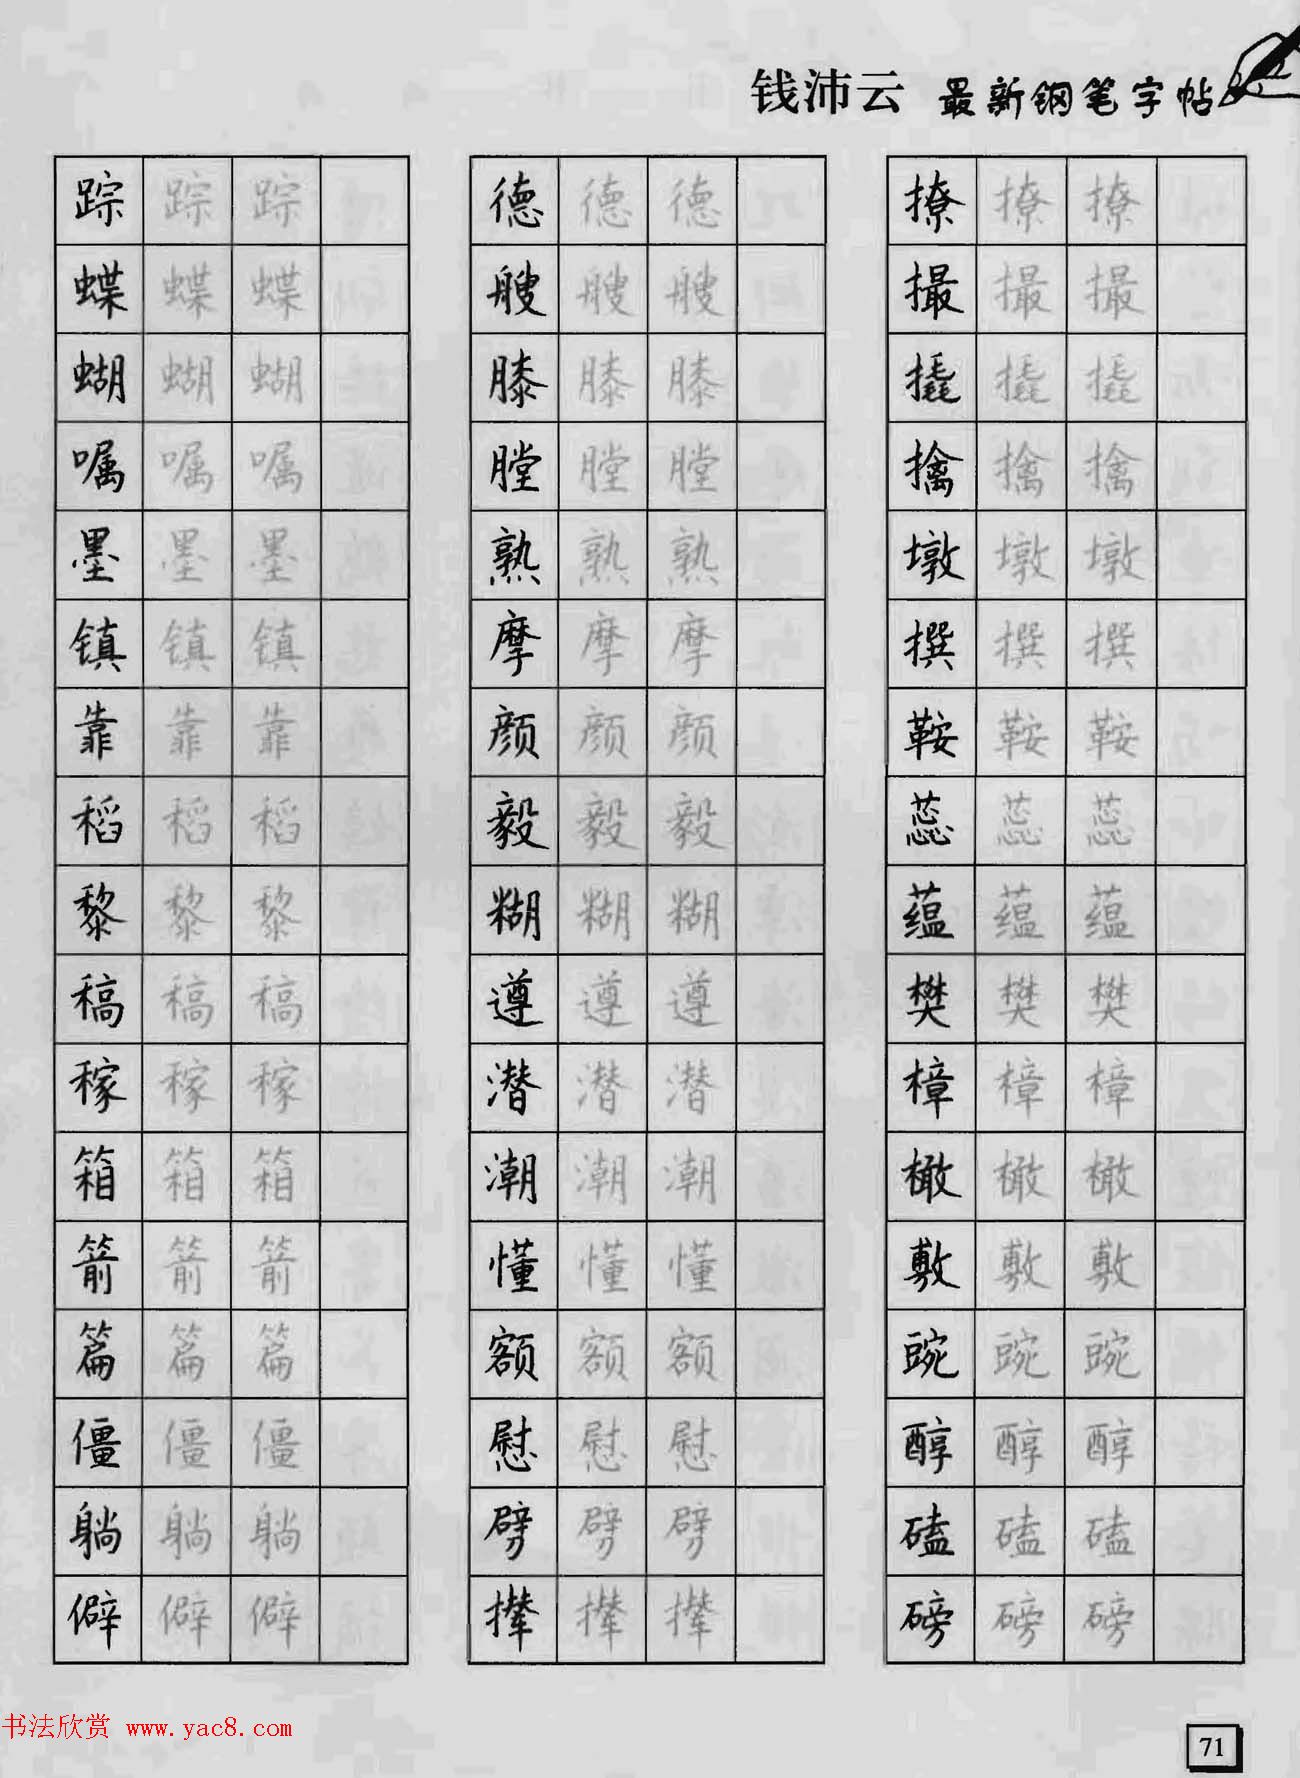 钱沛云 最新钢笔字帖
踪 踪 踪 德 德 德 撩 撩 撩
蝶 蝶 蝶 艘 艘 艘 撮 撮 撮
蝴 蝴 蝴 膝 膝 膝 撬 撬 撬
嘱 嘱 嘱 膛 膛 膛 擒 擒 擒
墨 墨 墨 熟 熟 熟 墩 墩 墩
镇 镇 镇 摩 摩 摩 撰 撰 撰
靠 靠 靠 颜 颜 颜 鞍 鞍 鞍
稻 稻 稻 毅 毅 毅 蕊 蕊 蕊
黎 黎 黎 糊 糊 糊 蕴 蕴 蕴
稿 稿 稿 遵 遵 遵 樊 樊 樊
稼 稼 稼 潜 潜 潜 樟 樟 樟
箱 箱 箱 潮 潮 潮 橄 橄 橄
箭 箭 箭 懂 懂 懂 敷 敷 敷
篇 篇 篇 额 额 额 豌 豌 豌
僵 僵 僵 慰 慰 慰 醇 醇 醇
躺 躺 躺 劈 劈 劈 磕 磕 磕
僻 僻 僻 撵 撵 撵 磅 磅 磅
书法欣赏 www.yac8.com
71